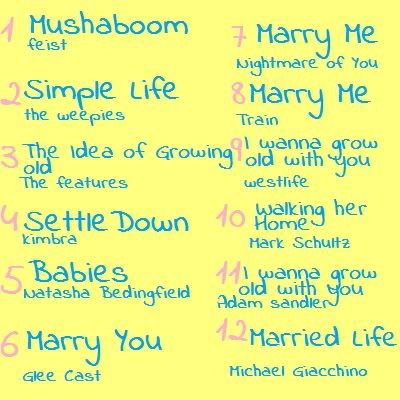 1 Mushaboom
feist
2 Simple Life
the weepies
3 The Idea of Growing
old
The features
4 Settle Down
kimbra
5 Babies
Natasha Bedingfield
6 Marry You
Glee Cast
7 Marry Me
Nightmare of You
8 Marry Me
Train
9 I wanna grow
old with you
westlife
10 walking her
Home
Mark Schultz
11 I wanna grow
old with you
Adam sandler
12 Married Life
Michael Giacchino